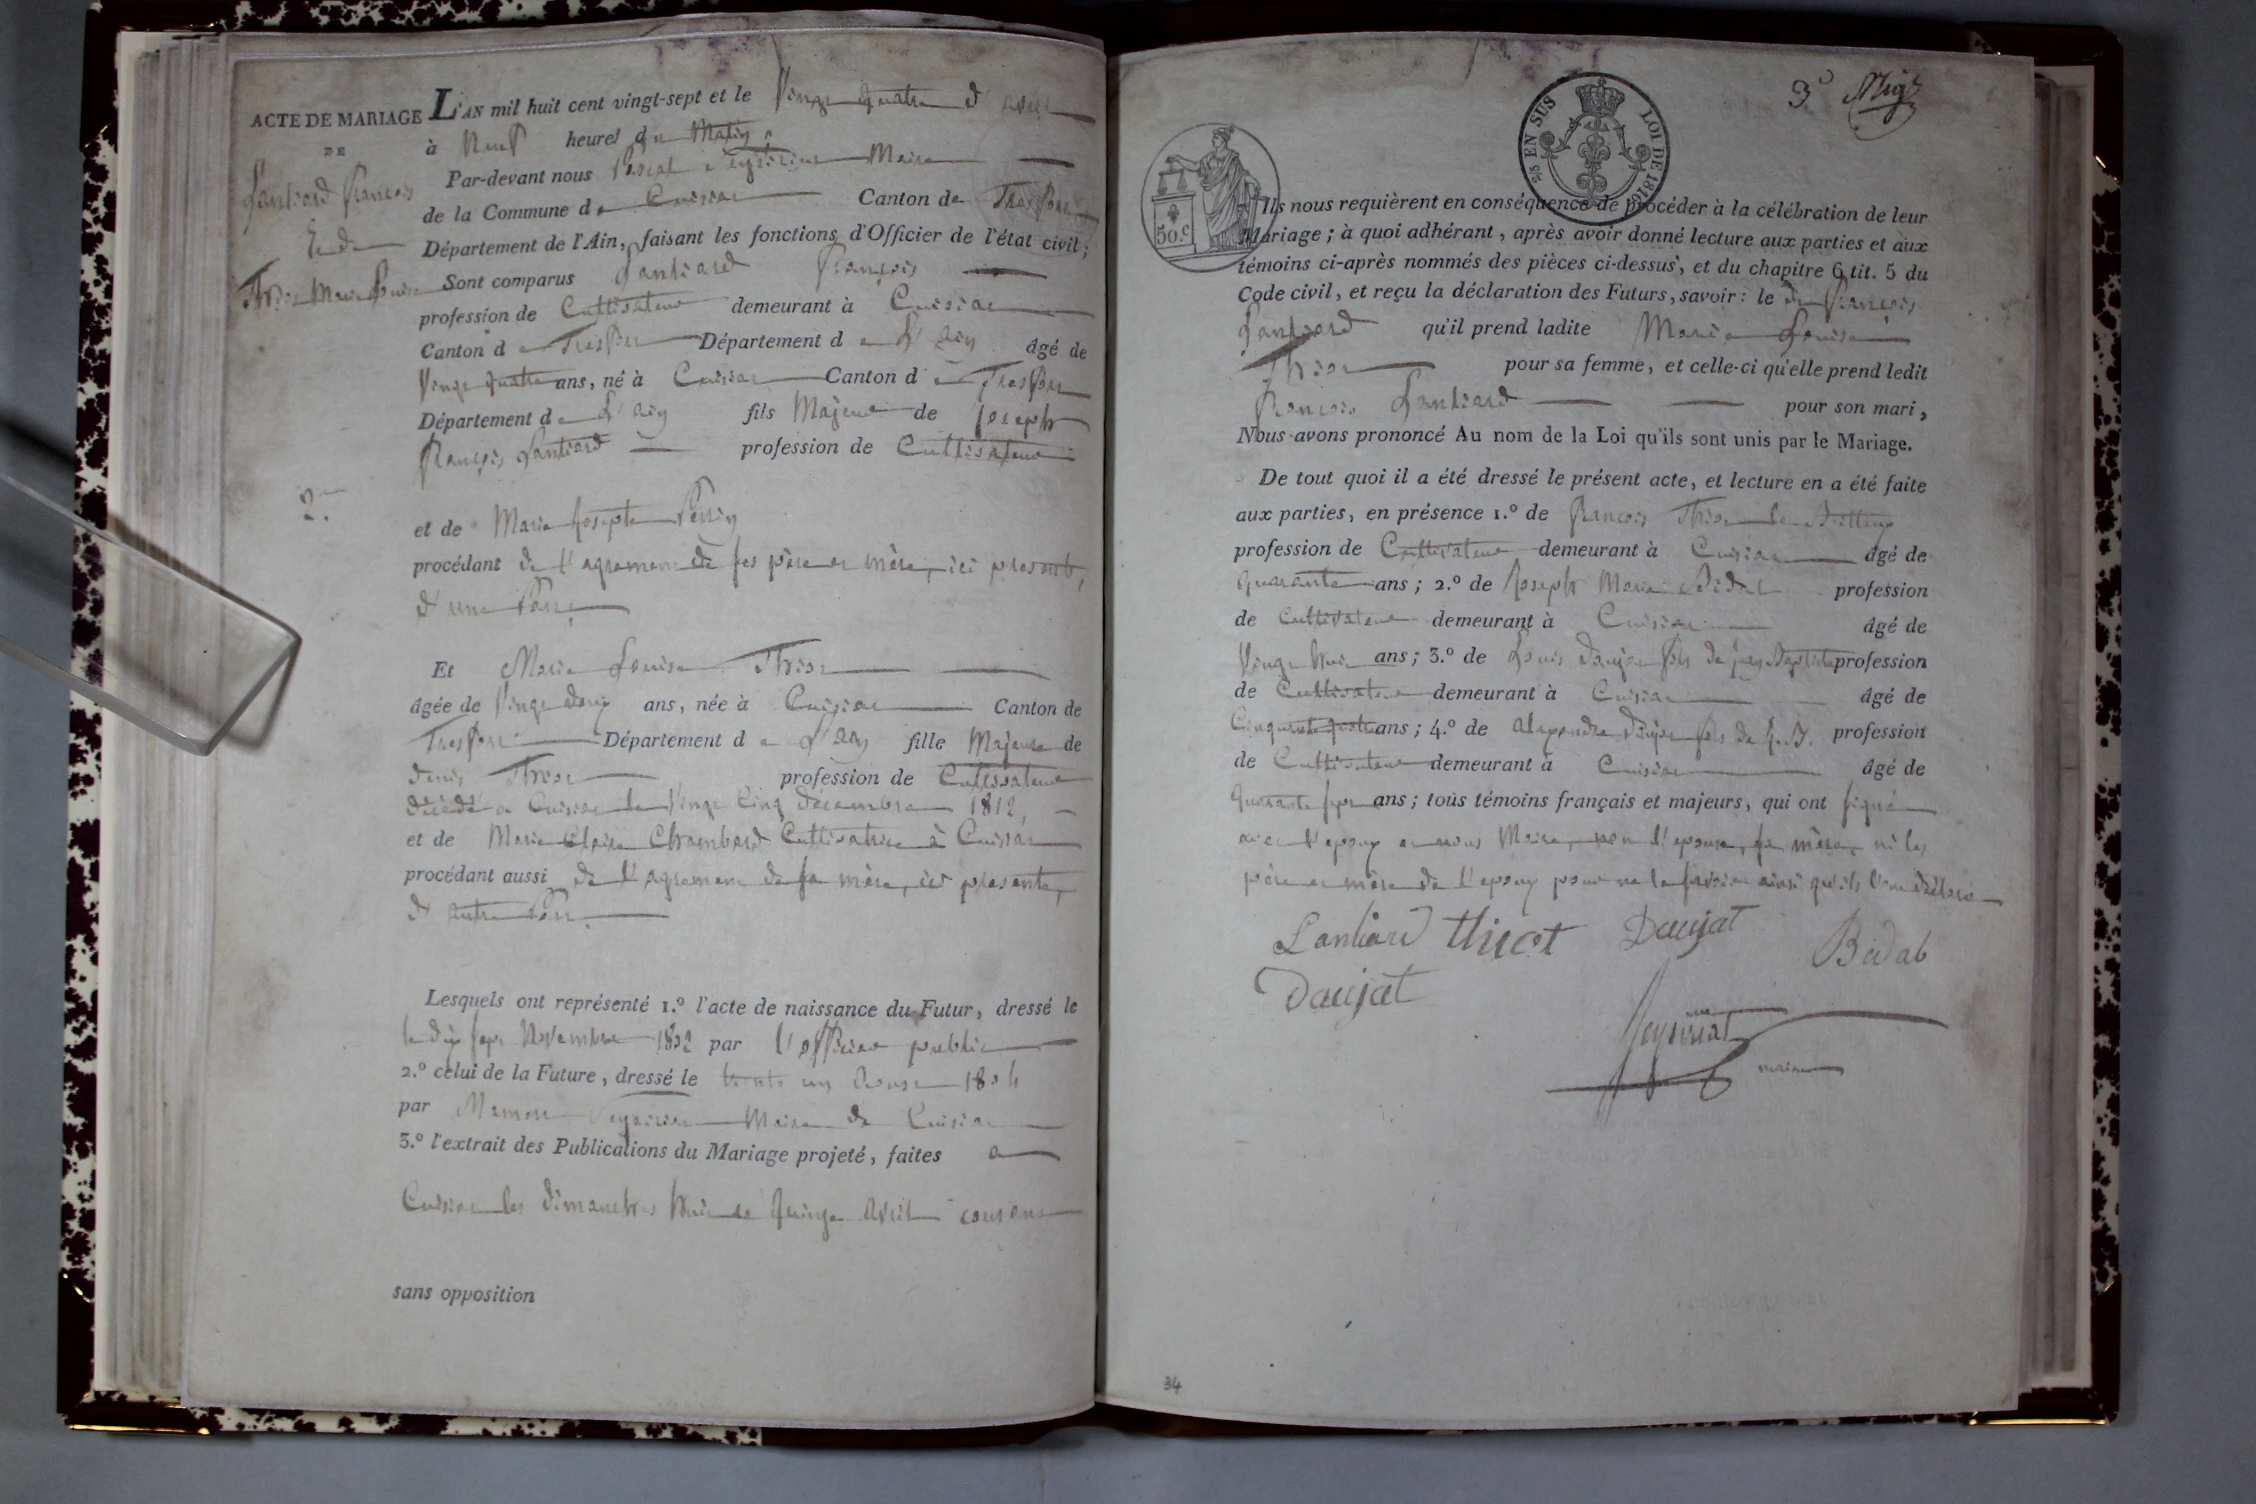 ACTE DE MARIAGE
DE
Lantiard François
Et de
Thicot Marie Louise
2.
L'AN mil huit cent vingt-sept et le Vingt quatre d avril
à Neuf heures du Matin
Par-devant nous Pascal Neyrivier Maire
de la Commune de Cuisiat Canton de Treffort
Département de l'Ain, faisant les fonctions d'Officier de l'état civil;
Sont comparus Lantiard François
profession de Cultivateur demeurant à Cuisiat
Canton de Treffort Département de L'Ain âgé de
Vingt quatre ans, né à Cuisiat Canton de Treffort
Département de L'ain fils Majeur de Joseph
François Lantiard profession de Cultivateur
et de Marie Josephte Perrin
procédant de l'agrement de ses père et mère, ici presents,
d'une Part,
Et Marie Louise Thicot
âgée de Vingt deux ans, née à Cuisiat Canton de
Treffort Département de L'Ain fille Majeure de
denis Thicot profession de Cultivateur
décédé a Cuisiat le Vingt Cinq décembre 1812,
et de Marie Claire Chambard Cultivatrice à Cuisiat
procédant aussi de l'agrement de sa mère, ici presente,
d'autre Part,
Lesquels ont représenté 1.º l'acte de naissance du Futur, dressé le
le dix sept Novembre 1802 par l'officier public
2.º celui de la Future, dressé le trente un 1804
par Maire de Cuisiat
3.º l'extrait des Publications du Mariage projeté, faites a
Cuisiat les dimanches huit et quinze avril courant
sans opposition
3e
EN SUS LOI DE 1816
50.c
Ils nous requièrent en conséquence de procéder à la célébration de leur
Mariage; à quoi adhérant, après avoir donné lecture aux parties et aux
témoins ci-après nommés des pièces ci-dessus, et du chapitre 6 tit. 5 du
Code civil, et reçu la déclaration des Futurs, savoir: le dit François
Lantiard qu'il prend ladite Marie Louise
Thicot pour sa femme, et celle-ci qu'elle prend ledit
François Lantiard pour son mari,
Nous avons prononcé Au nom de la Loi qu'ils sont unis par le Mariage.
De tout quoi il a été dressé le présent acte, et lecture en a été faite
aux parties, en présence 1.º de François Thicot
profession de Cultivateur demeurant à Cuisiat âgé de
quarante ans; 2.º de Joseph Marie Bidal profession
de Cultivateur demeurant à Cuisiat âgé de
Vingt huit ans; 3.º de Louis daujat fils de jean Baptiste profession
de Cultivateur demeurant à Cuisiat âgé de
Cinquante quatre ans; 4.º de alexandre daujat fils de J.B. profession
de Cultivateur demeurant à Cuisiat âgé de
quarante sept ans; tous témoins français et majeurs, qui ont signé
avec l'epoux et nous Maire, non l'epouse, sa mère, ni les
père et mère de l'epoux pour ne le savoir ainsi qu'ils l'ont déclaré
Lantiard thicot Daujat Bidal
Daujat
maire
34